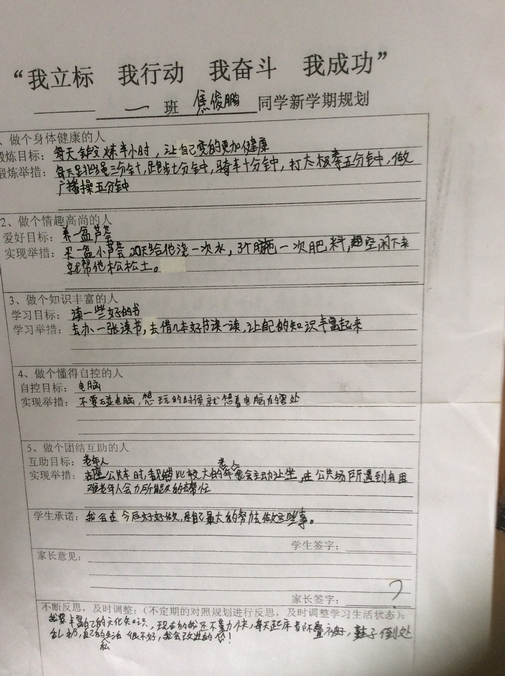 “我立标 我行动 我奋斗 我成功”
一 班 焦俊鹏 同学新学期规划
、做个身体健康的人
锻炼目标：每天锻炼半小时，让自己变的更加健康
锻炼举措：每天跳绳三分钟，跑步十分钟，骑车十分钟，打太极拳五分钟，做
广播操五分钟
2、做个情趣高尚的人
爱好目标：养一盆芦荟
实现举措：买一盆小芦荟 20天给他浇一次水，3个月施一次肥料，趁空闲下来
就帮他松松土。
3、做个知识丰富的人
学习目标：读一些好的书
学习举措：去办一张读书，去借几本好书读一读，让自己的知识丰富起来
4、做个懂得自控的人
自控目标：电脑
实现举措：不要碰电脑，想玩的时候就想着电脑的害处
5、做个团结互助的人
互助目标：老年人
实现举措：公共车时，看到比较大的老人会主动让坐，在公共场所遇到有困
难老年人会力所能及的去帮忙
学生承诺：我会在今后好好做，用自己最大的努力做这些事。
学生签字：
家长意见：
家长签字：
?
不断反思，及时调整：（不定期的对照规划进行反思，及时调整学习生活状态）：
我要丰富自己的文化知识，现在的我还不努力，每天起床者不叠被子，鞋子倒处
乱扔，自己的生活很不好，我会改进的！